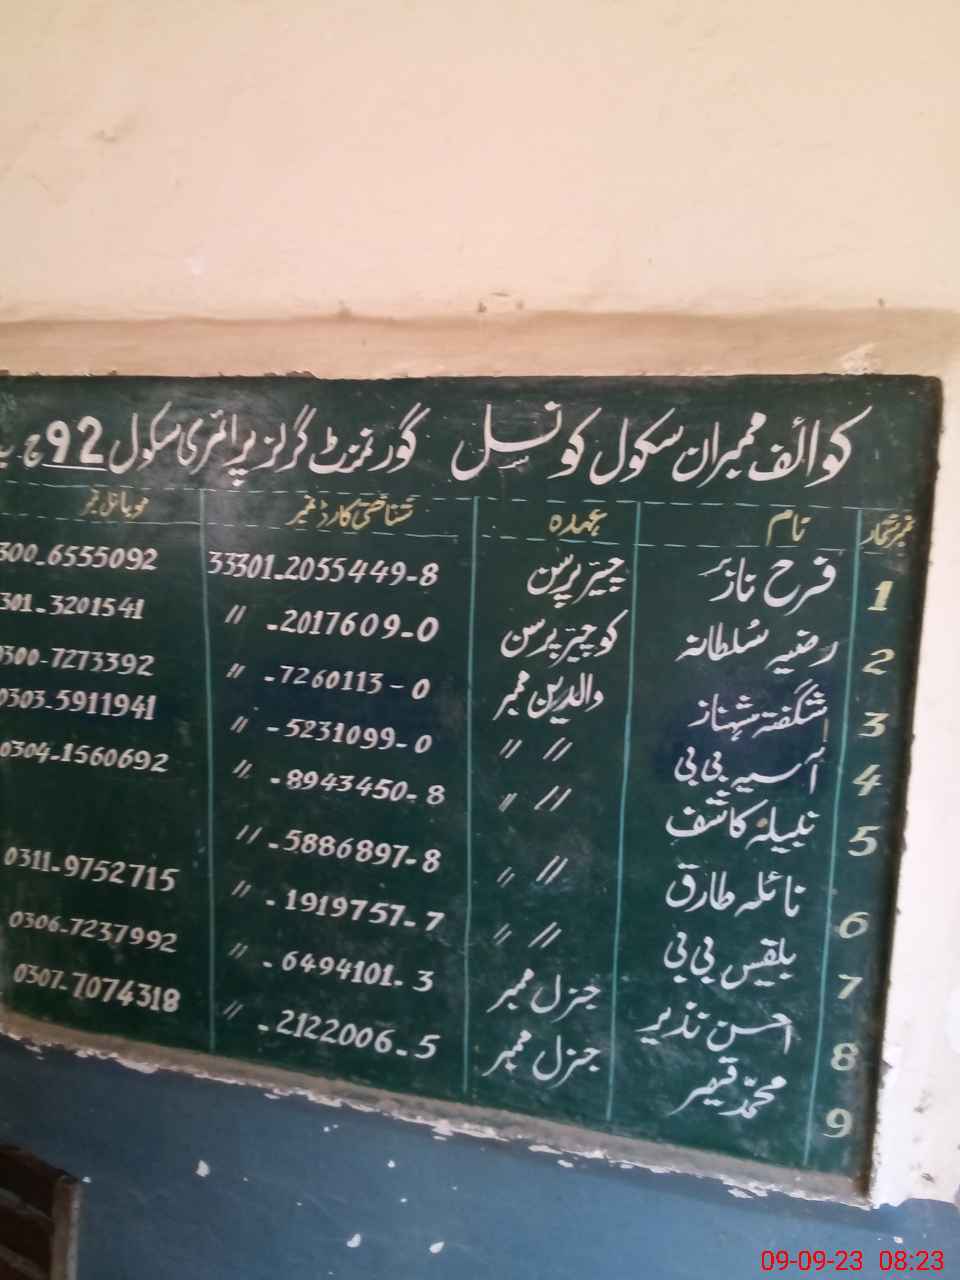 کوائف ممبران سکول کونسل گورنمنٹ گرلز پرائمری سکول 92 ج
نمبر شمار نام عہدہ شناختی کارڈ نمبر موبائل نمبر
1 فرح ناز چیئر پرسن 33301-2055449-8 300-6555092
2 رضیہ سُلطانہ کو چیئر پرسن 〃 -2017609-0 301-3201541
3 شگفتہ شہناز والدین ممبر 〃 -7260113-0 0300-7273392
4 آسیہ بی بی 〃 〃 〃 -5231099-0 0303-5911941
5 نبیلہ کاشف 〃 〃 〃 -8943450-8 0304-1560692
6 نائلہ طارق 〃 〃 〃 -5886897-8
7 بلقیس بی بی 〃 〃 〃 -1919757-7 0311-9752715
8 احسن نذیر جنرل ممبر 〃 -6494101-3 0306-7237992
9 محمّد قیصر جنرل ممبر 〃 -2122006-5 0307-7074318
09-09-23 08:23